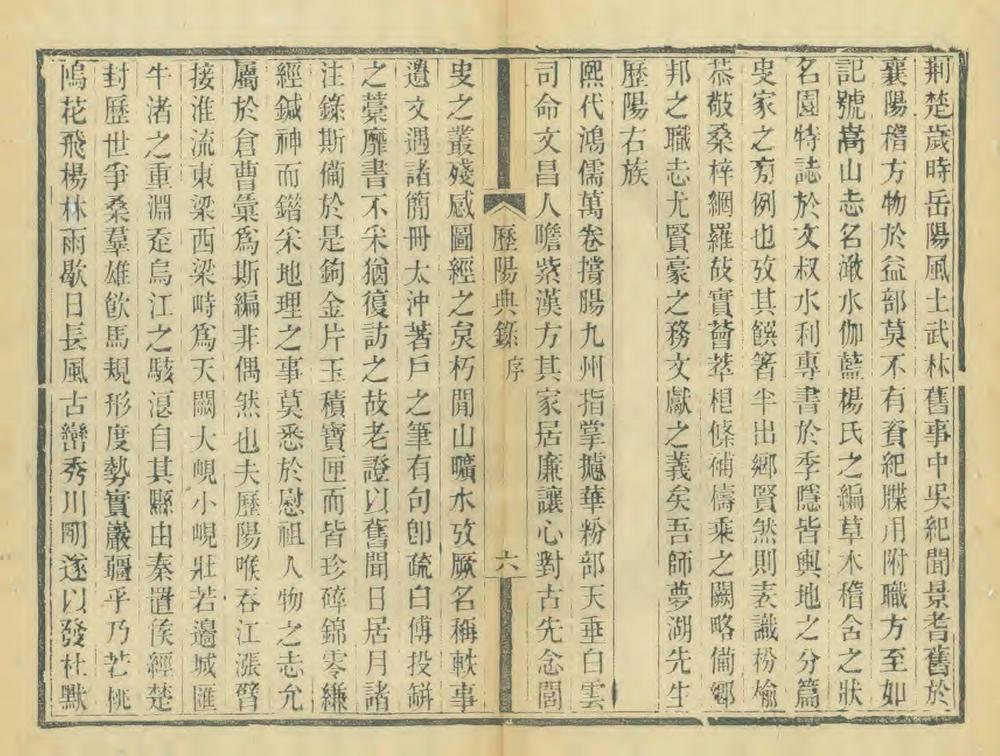 荆楚歲時岳陽風土武林舊事中吳紀聞景耆舊於
襄陽稽方物於益部莫不有資紀牒用附職方至如
記號嵩山志名澉水伽藍楊氏之編草木稽含之狀
名園特誌於文叔水利專書於季隱皆輿地之分篇
史家之 例也攷其饌箸半出鄉賢然則表識枌榆
恭敬桑梓網羅故實薈萃梖條補檮乘之闕略備鄉
邦之職志尤賢豪之務文獻之義矣吾師夢湖先生
歷陽右族
熙代鴻儒萬卷撐腸九州指掌摅華粉部天垂白雲
司命文昌人瞻紫漢方其家居廉讓心對古先念閭
歷陽典錄 序 六
史之叢殘感圖經之 朽閒山曠水攷厥名稱軼事
遺文遇諸簡冊太沖著戶之筆有句卽疏白傅投缾
之藁靡書不采猶復訪之故老證以舊聞日居月諸
注錄斯備於是鉤金片玉積寶匣而皆珍碎錦零縑
經鍼神而鍇采地理之事莫悉於慰祖人物之志允
屬於倉曹彙爲斯編非偶然也夫歷陽喉吞江漲臂
接淮流東梁西梁峙爲天闕大峴小峴壯若邊城匯
牛渚之重淵 烏江之駭 自其縣由秦置侯經楚
封歷世爭桑羣雄飮馬規形度勢實巖疆乎乃若桃
塢花飛楊林雨歇日長風古巒秀川剛遂以發杜默